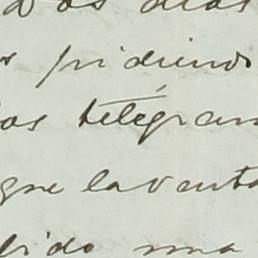 dos dias
pidiendo
os telegram
que la venta
dido una